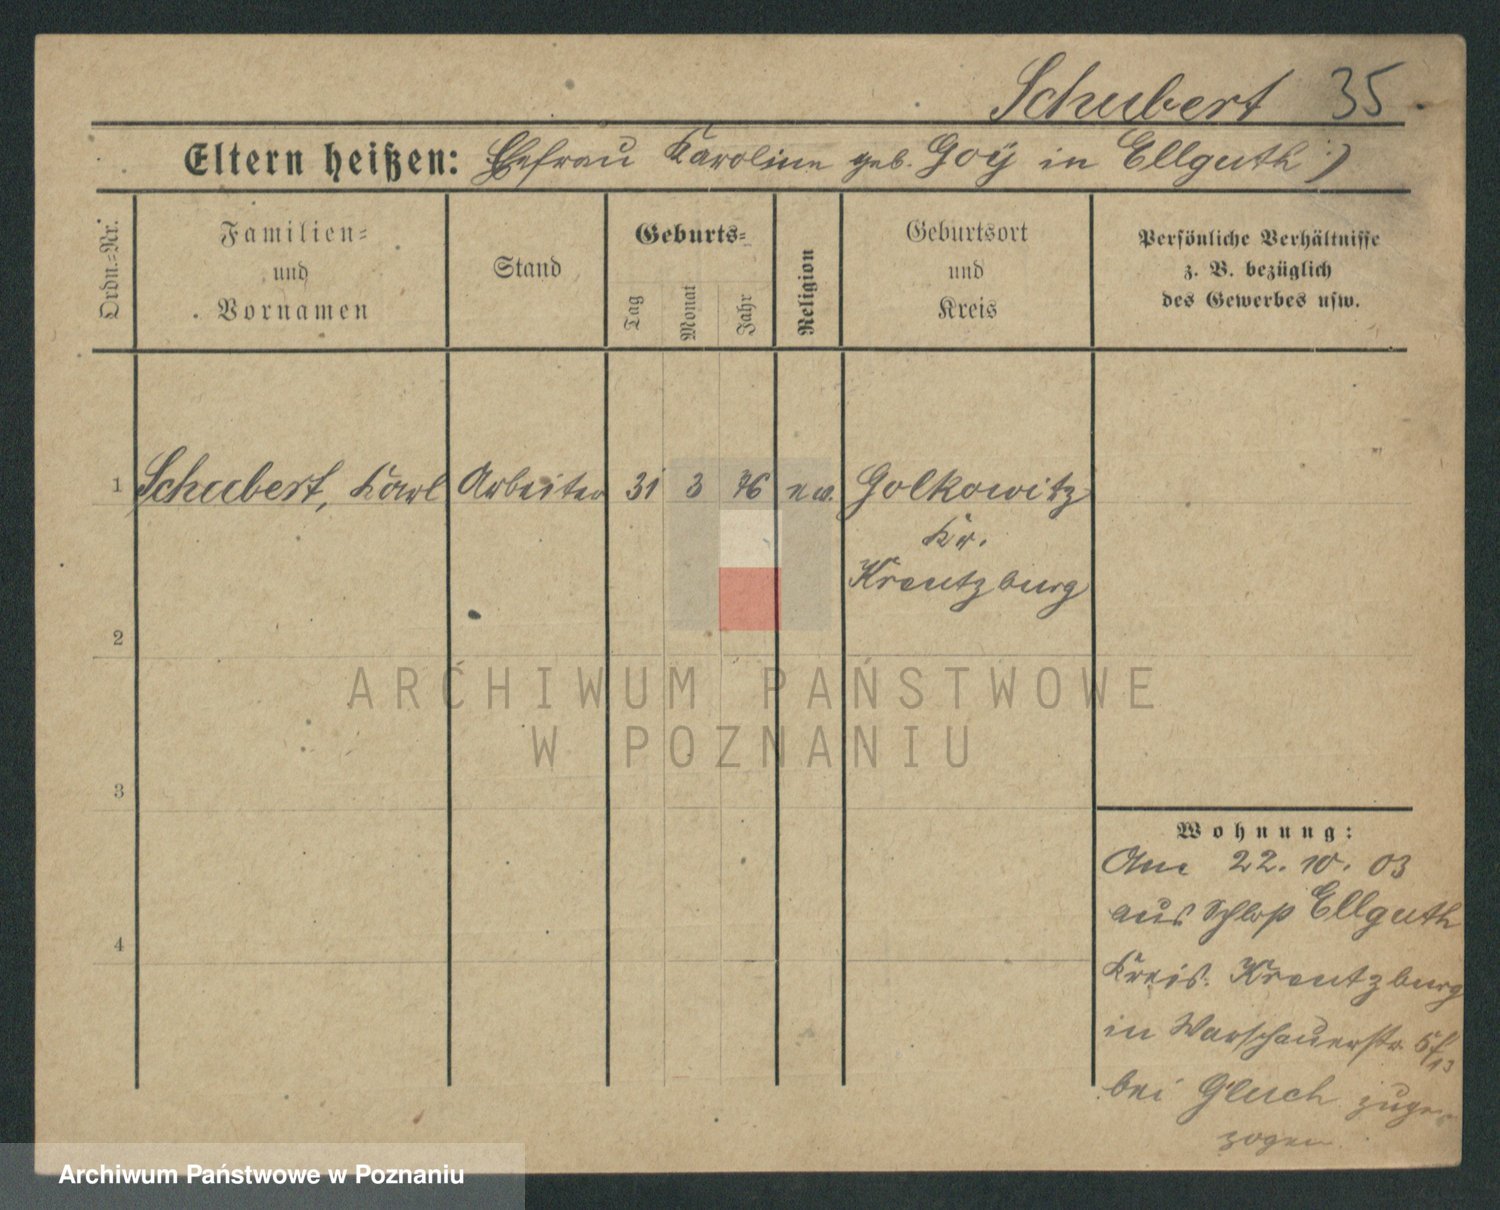 Schubert 35
Eltern heißen: Ehefrau Karoline geb. Goÿ in Ellguth )
Ordn.=Nr.
Familien=
und
Vornamen
Stand
Geburts=
Tag
Monat
Jahr
Religion
Geburtsort
und
Kreis
Persönliche Verhältnisse
z. B. bezüglich
des Gewerbes usw.
1 Schubert, Karl Arbeiter 31 3 76 ew. Golkowitz
Kr.
Kreutzburg
2
3
4
Wohnung:
Am 22. 10. 03
aus Schloß Ellguth
Kreis. Kreutzburg
in Warschauerstr.
bei Gluch zuge=
zogen.
ARCHIWUM PAŃSTWOWE
W POZNANIU
Archiwum Państwowe w Poznaniu